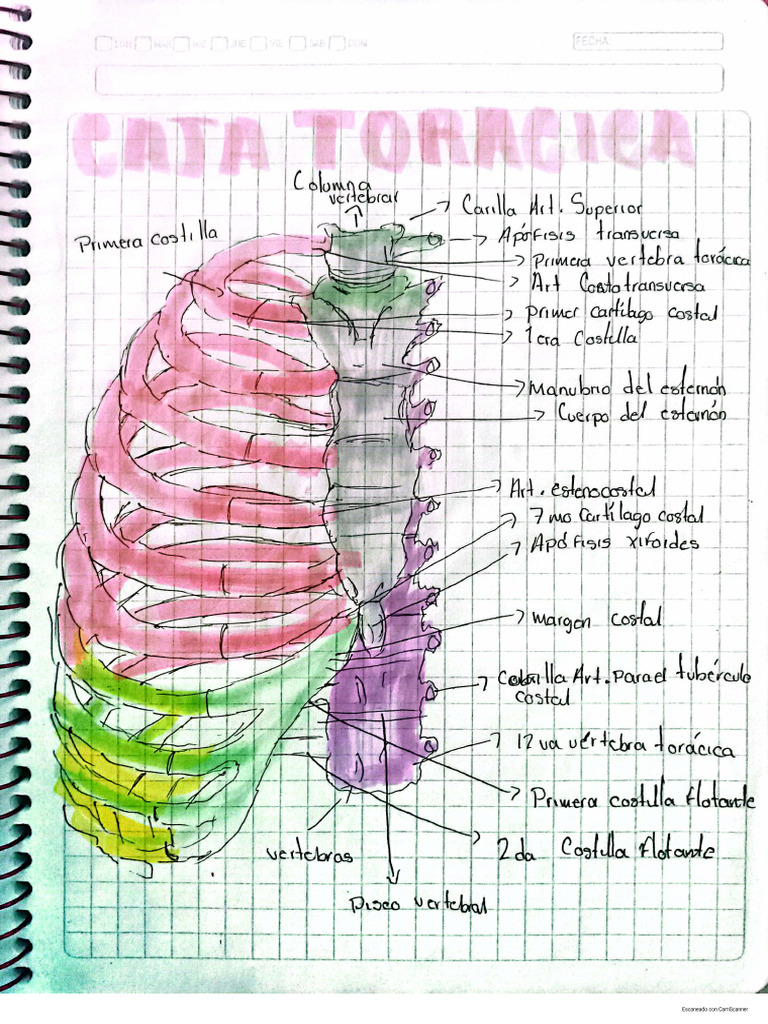 LUN MAR MIE JUE VIE SAB DOM
FECHA
CAJA TORACICA
Columna
vertebral
Primera costilla
Carilla Art. Superior
Apófisis transversa
Primera vertebra torácica
Art Costotransversa
Primer cartílago costal
1era Costilla
Manubrio del esternón
Cuerpo del esternón
Art. esternocostal
7mo cartílago costal
Apófisis xifoides
margen costal
Art. para el tubérculo
costal
12va vértebra torácica
Primera costilla flotante
2da Costilla flotante
vertebras
Disco vertebral
Escaneado con CamScanner